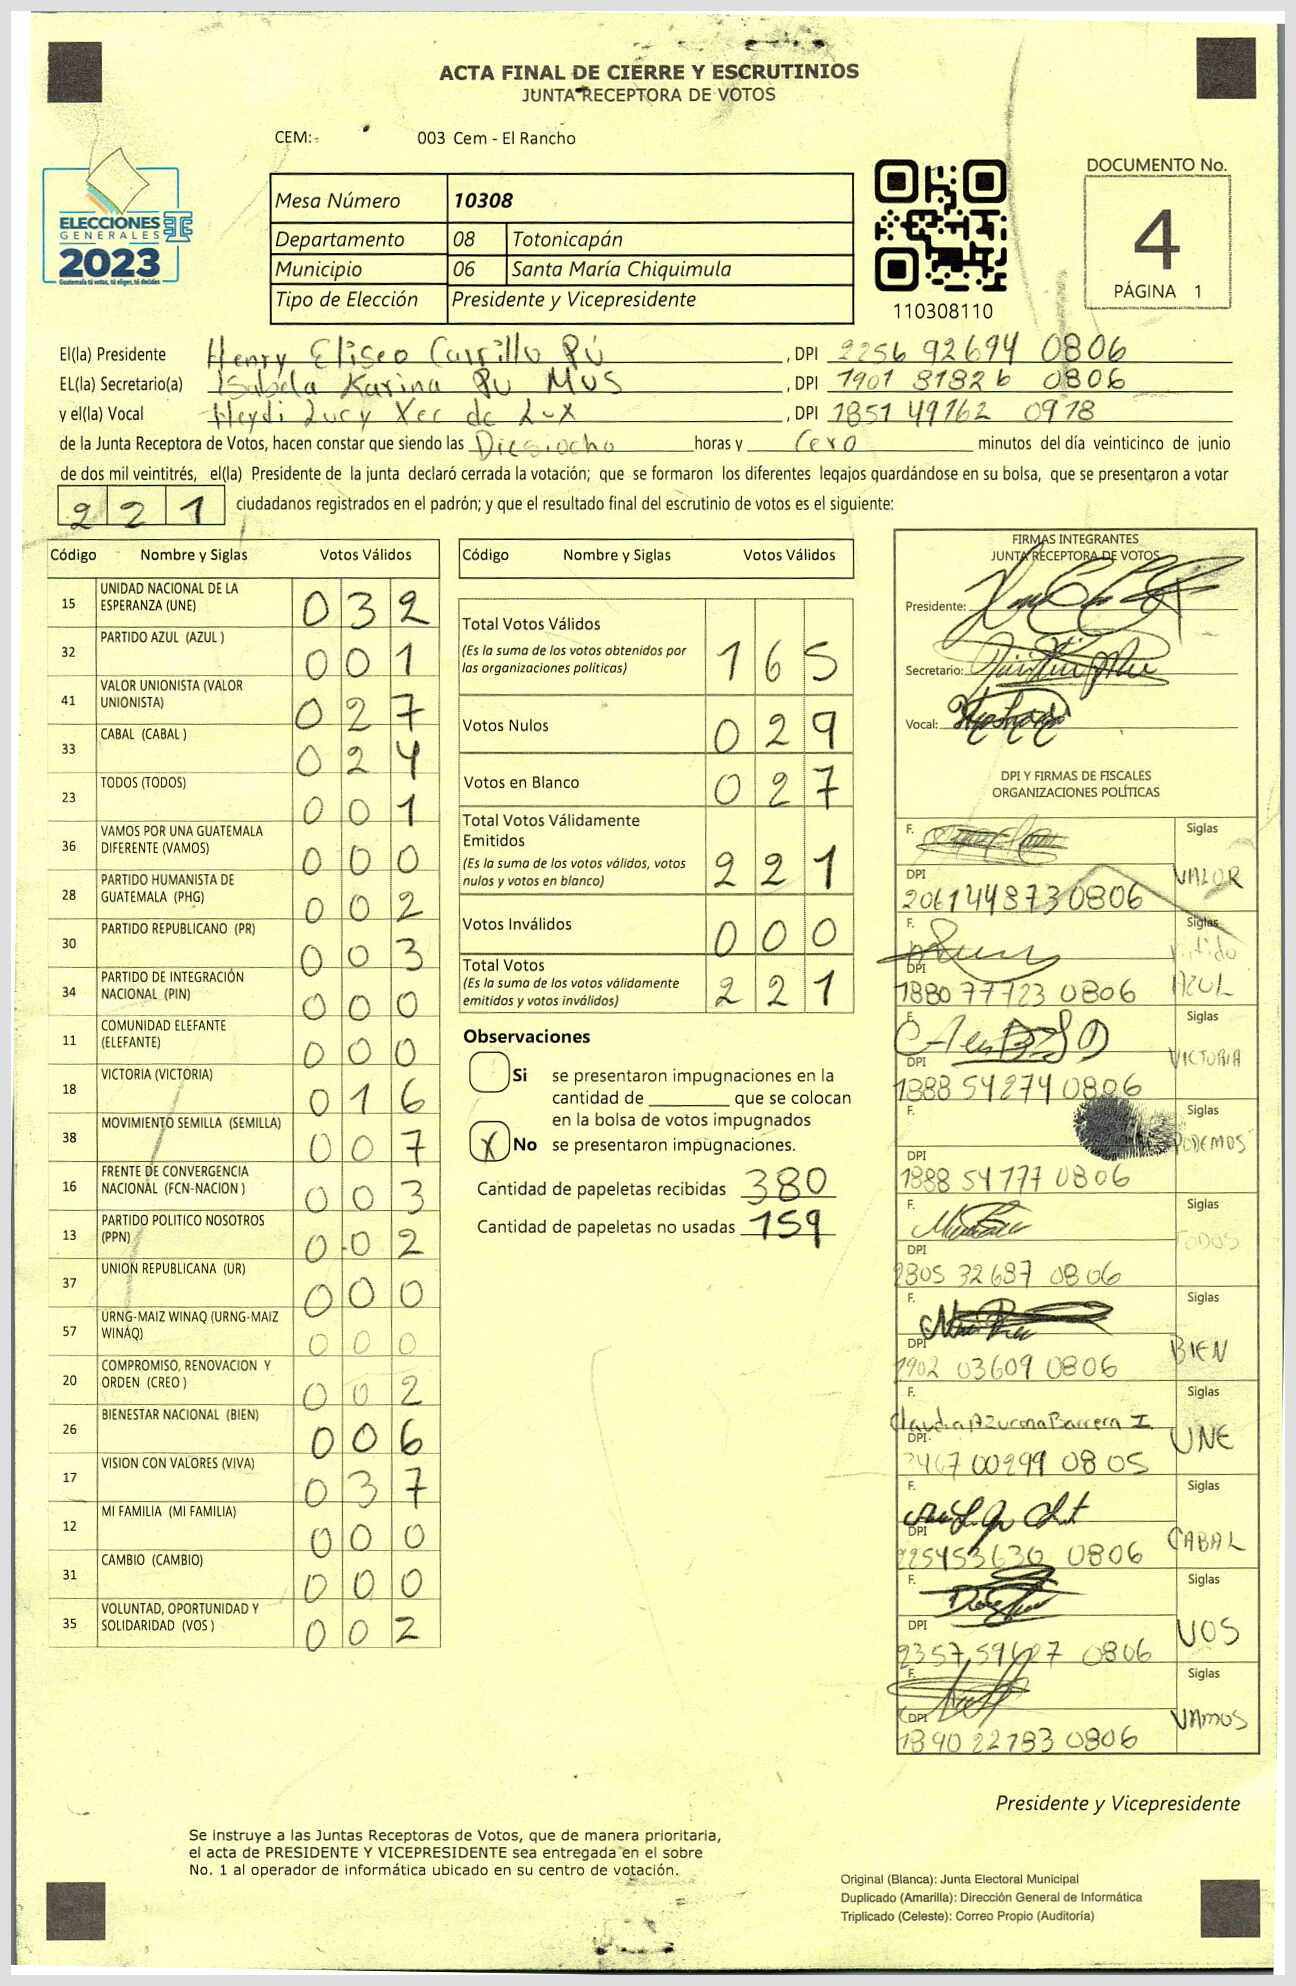 ACTA FINAL DE CIERRE Y ESCRUTINIOS
JUNTA RECEPTORA DE VOTOS
CEM: 003 Cem - El Rancho
DOCUMENTO No.
4
PÁGINA 1
ELECCIONES
GENERALES
2023
Guatemala tú votas, tú eliges, tú decides
Mesa Número 10308
Departamento 08 Totonicapán
Municipio 06 Santa María Chiquimula
Tipo de Elección Presidente y Vicepresidente
110308110
El(la) Presidente Henry Eliseo Carrillo Pú , DPI 2256 92694 0806
EL(la) Secretario(a) Isabela Karina Pu Mus , DPI 1901 81826 0806
y el(la) Vocal Heydi Lucy Xec de Lux , DPI 1851 49162 0918
de la Junta Receptora de Votos, hacen constar que siendo las Diesiocho horas y Cero minutos del día veinticinco de junio
de dos mil veintitrés, el(la) Presidente de la junta declaró cerrada la votación; que se formaron los diferentes legajos guardándose en su bolsa, que se presentaron a votar
221 ciudadanos registrados en el padrón; y que el resultado final del escrutinio de votos es el siguiente:
Código Nombre y Siglas Votos Válidos
15 UNIDAD NACIONAL DE LA ESPERANZA (UNE) 032
32 PARTIDO AZUL (AZUL ) 001
41 VALOR UNIONISTA (VALOR UNIONISTA) 027
33 CABAL (CABAL ) 024
23 TODOS (TODOS) 001
36 VAMOS POR UNA GUATEMALA DIFERENTE (VAMOS) 000
28 PARTIDO HUMANISTA DE GUATEMALA (PHG) 002
30 PARTIDO REPUBLICANO (PR) 003
34 PARTIDO DE INTEGRACIÓN NACIONAL (PIN) 000
11 COMUNIDAD ELEFANTE (ELEFANTE) 000
18 VICTORIA (VICTORIA) 016
38 MOVIMIENTO SEMILLA (SEMILLA) 007
16 FRENTE DE CONVERGENCIA NACIONAL (FCN-NACION ) 003
13 PARTIDO POLITICO NOSOTROS (PPN) 002
37 UNION REPUBLICANA (UR) 000
57 URNG-MAIZ WINAQ (URNG-MAIZ WINAQ) 000
20 COMPROMISO, RENOVACION Y ORDEN (CREO ) 002
26 BIENESTAR NACIONAL (BIEN) 006
17 VISION CON VALORES (VIVA) 037
12 MI FAMILIA (MI FAMILIA) 000
31 CAMBIO (CAMBIO) 000
35 VOLUNTAD, OPORTUNIDAD Y SOLIDARIDAD (VOS ) 002
Código Nombre y Siglas Votos Válidos
Total Votos Válidos 165
(Es la suma de los votos obtenidos por
las organizaciones políticas)
Votos Nulos 029
Votos en Blanco 027
Total Votos Válidamente
Emitidos 221
(Es la suma de los votos válidos, votos
nulos y votos en blanco)
Votos Inválidos 000
Total Votos 221
(Es la suma de los votos válidamente
emitidos y votos inválidos)
Observaciones
Si se presentaron impugnaciones en la
cantidad de ________ que se colocan
en la bolsa de votos impugnados
X No se presentaron impugnaciones.
Cantidad de papeletas recibidas 380
Cantidad de papeletas no usadas 159
FIRMAS INTEGRANTES
JUNTA RECEPTORA DE VOTOS
Presidente:
Secretario:
Vocal:
DPI Y FIRMAS DE FISCALES
ORGANIZACIONES POLÍTICAS
F. Siglas
DPI VALOR
206144873 0806
F. Siglas
DPI Partido AZUL
1880 77723 0806
F. Siglas
DPI VICTORIA
1888 54274 0806
F. Siglas
DPI PODEMOS
1888 54777 0806
F.
DPI TODOS
2805 32687 0806
F. Siglas
DPI BIEN
1902 03609 0806
F. Siglas
Claudia Azucena Barrera I
DPI UNE
3467 00299 0805
F. Siglas
DPI CABAL
225453630 0806
F. Siglas
DPI VOS
2357 59627 0806
F. Siglas
DPI VAMOS
1890 22783 0806
Presidente y Vicepresidente
Se instruye a las Juntas Receptoras de Votos, que de manera prioritaria,
el acta de PRESIDENTE Y VICEPRESIDENTE sea entregada en el sobre
No. 1 al operador de informática ubicado en su centro de votación.
Original (Blanca): Junta Electoral Municipal
Duplicado (Amarilla): Dirección General de Informática
Triplicado (Celeste): Correo Propio (Auditoría)